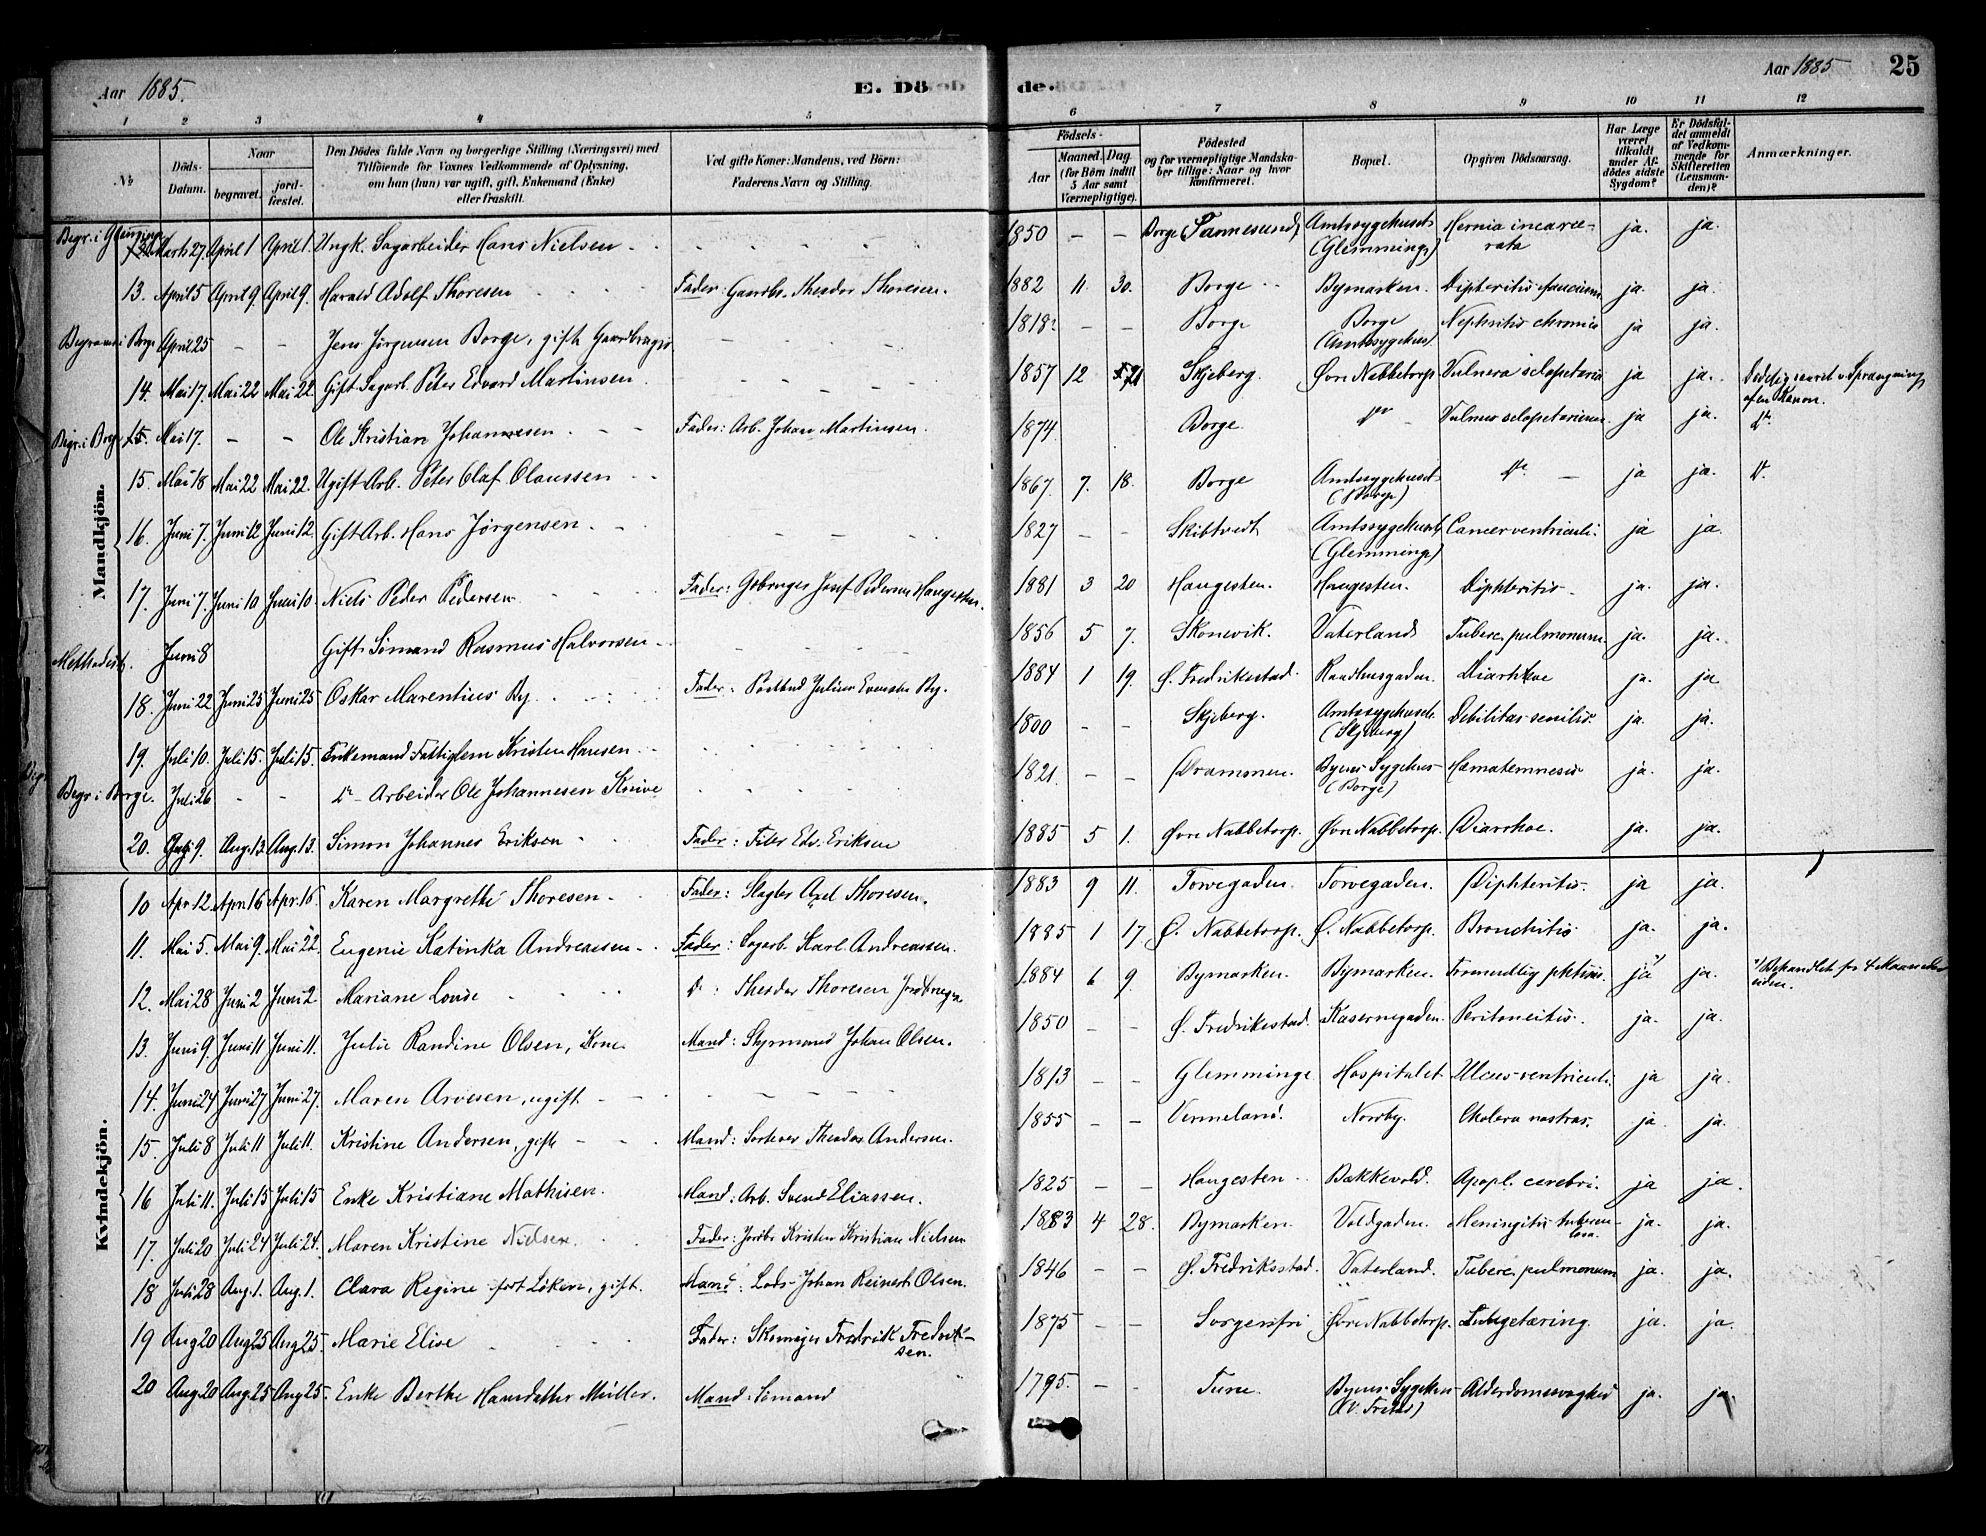 Aar 1885.
E. Dö
de.
Aar 1885
25
1 2 3 4 5 6 7 8 9 10 11 12
№
Döds-Datum.
Naar
begravet.
jord-fæstet.
Den Dödes fulde Navn og borgerlige Stilling (Næringsvei) med
Tilföiende for Voxnes Vedkommende af Oplysning,
om han (hun) var ugift, gift, Enkemand (Enke)
eller fraskilt.
Ved gifte Koner: Mandens, ved Börn:
Faderens Navn og Stilling.
Födsels-
Aar
Maaned. Dag
(for Börn indtil
5 Aar samt
Værnepligtige).
Födested
og for værnepligtige Mandska-
ber tillige: Naar og hvor
konfirmeret.
Bopæl.
Opgiven Dödsaarsag.
Har Læge
været
tilkaldt
under Af-
dödes sidste
Sygdom?
Er Dödsfal-
det anmeldt
af Vedkom-
mende for
Skifteretten
(Lensman-
den)?
Anmærkninger.
Mandkjön.
Begr. i Glemminge Marts 27. April 1 April 1. Ungk. Sagarbeider Hans Nielsen 1850 – – Borge Amtssygehuset (Glemminge) Hernia incarcerata ja. ja.
13. April 5 April 9. April 9. Harald Adolf Thoresen Fader: Gaardbr. Theodor Thoresen. 1882 11 30. Borge Bymarken. Diphteritis faucium ja. ja.
Begraven i Borge April 25 – – Jens Jörgensen Borge, gift Gaardbruger 1818 – – Borge Borge (Amtssygehus) Nephritis chronica ja ja.
14. Mai 17. Mai 22 Mai 22. Gift Sagarb. Peter Edvard Martinsen 1857 12 21 Skjeberg. Øvre Nabbetorp Vulnera sclopetaria ja ja. Dødelig saaret v. Sprængning af en Kanon.
Begr. i Borge Mai 17. – – Ole Kristian Johannesen Fader: Arb. Johan Martinsen. 1874 Borge do Vulnus sclopetarium ja ja. do
15. Mai 18 Mai 22 Mai 22. Ugift Arb. Peter Olaf Olaussen 1867. 7. 18. Borge Amtssygehuset (Borge) do – ja ja. do
16. Juni 7. Juni 12 Juni 12 Gift Arb. Hans Jørgensen 1827 – – Skibtvedt Amtssygehuset (Glemminge) Cancer ventriculi. ja ja
17. Juni 7. Juni 10 Juni 10. Niels Peder Pedersen Fader: Gdbruger Josef Pedersen Haugesten. 1881 3 20 Haugesten. Haugesten. Diphteritis. ja. ja.
Methodist. Juni 8 Gift Sømand Rasmus Halvorsen 1856 5 7. Skonevik. Vaterland Tuberc. pulmonum ja. ja.
18. Juni 22 Juni 25 Juni 25 Oskar Marentius By Fader: Postbud Julius Evensen By. 1884 1 19. Ø. Fredrikstad. Raadhusgaden. Diarrhoe ja. ja
19. Juli 10. Juli 15. Juli 15. Enkemand Fattiglem Kristen Hansen 1800 – – Skjeberg. Amtssygehuset (Skjeberg) Debilitas senilis ja. ja.
Begr. i Borge. Juli 26 – – do – Arbeider Ole Johannesen Knive 1821. – – Drammen. Byens Sygehus (Borge) Hæmatemesis ja. ja.
20. 9. Aug. 13. Aug. 13. Simon Johannes Eriksen Fader: Edv. Eriksen 1885 5 1. Øvre Nabbetorp. Øvre Nabbetorp. Diarrhoe. ja. ja.
Kvindekjön.
10 Apr. 12. Apr. 16 Apr. 16. Karen Margrethe Thoresen Fader: Slagter Axel Thoresen. 1883 9 11. Torvegaden. Torvegaden. Diphteritis. ja ja.
11. Mai 5. Mai 9. Mai 22. Eugenie Katinka Andreassen Fader: Sagarb. Karl Andreassen. 1885 1 17. Ø. Nabbetorp. Ø. Nabbetorp. Bronchitis ja. ja.
12. Mai 28 Juni 2 Juni 2. Mariane Lovise do: Theodor Thoresen Jordbruger 1884 6 9. Bymarken. Bymarken. ja ja. Behandlet for 4 Maaneder siden.
13. Juni 9. Juni 11 Juni 11. Julie Randine Olsen, Kone Mand: Styrmand Johan Olsen. 1850 – – Ø. Fredrikstad. Kasernegaden. Peritoneitis. ja. ja.
14. Juni 24 Juni 27 Juni 27. Maren Arvesen, ugift 1813 – – Glemminge Hospitalet Ulcus ventriculi. ja ja.
15. Juli 8 Juli 11 Juli 11. Kristine Andersen, gift Mand: Theodor Andersen. 1855 – – Vermeland. Nordby. Cholera nostras. ja ja.
16 Juli 11. Juli 15 Juli 15 Enke Kristiane Mathisen. Mand: Arb. Svend Eliassen. 1825 – – Haugesten Bakkevold. Apopl. cerebri. ja ja.
17. Juli 20 Juli 24 Juli 24. Maren Kristine Nielsen Fader: Jordbr. Kristen Kristian Nielsen 1883 4 28. Bymarken. Voldgaden. Meningitis tuberculosa. ja. ja.
18 Juli 28 Aug. 1. Aug. 1. Clara Regine født Løken, gift. Mand: Lods Johan Reinert Olsen. 1846 – – Ø. Fredriksstad. Vaterland. Tuberc. pulmonum ja. ja.
19 Aug 20 Aug 25 Aug 25. Marie Elise Fader: Skomager Fredrik Fredriksen. 1875 – – Sorgenfri Øvre Nabbetorp. Lungetæring. ja. ja.
20 Aug. 20 Aug. 25 Aug 25. Enke Berthe Hansdatter Müller. Mand: Sømand 1795. – – Tune. Byens Sygehus Alderdomssvaghed ja. ja